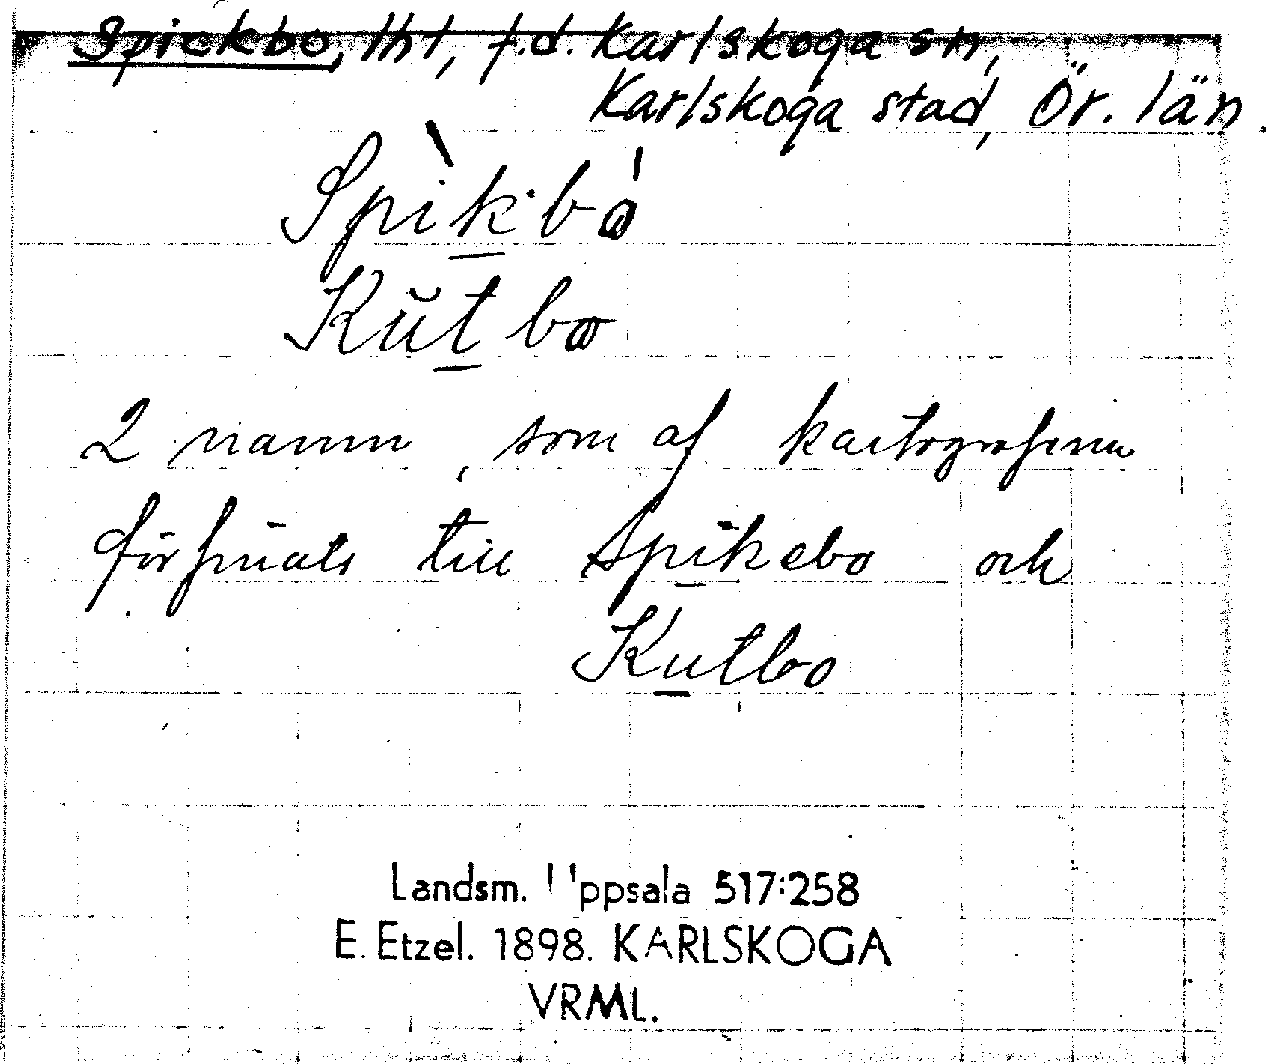 Spickbo, lht, f.d. Karlskoga sn,
Karlskoga stad, Ör. län.
Spìkbó
Kŭtbo
2 namn, som af kartograferna
förfinats till Spikebo och
Kutbo
Landsm. Uppsala 517:258
E. Etzel. 1898. KARLSKOGA
VRML.